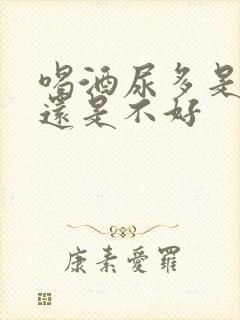 喝酒尿多是
還是不好
康素愛羅